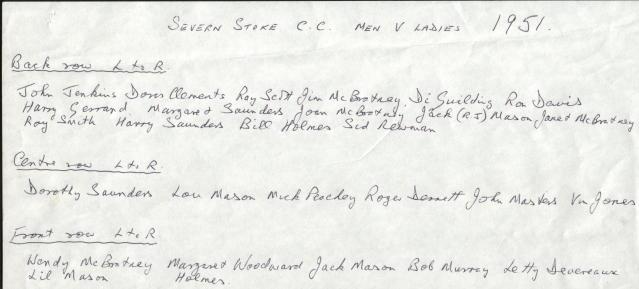 SEVERN STOKE C.C. MEN V LADIES 1951.
Back row L to R.
John Jenkins Doris Clements Roy Scott Jim McBratney Di Guilding Ron Davis
Harry Gerrand Margaret Saunders Joan McBratney Jack (R J) Mason Janet McBratney
Roy Smith Harry Saunders Bill Holmes Sid Newman
Centre row L to R.
Dorothy Saunders Lou Mason Mick Peachey Roger Dennett John Masters Viv Jones
Front row L to R.
Wendy McBratney Margaret Woodward Jack Mason Bob Murray Letty Devereaux
Lil Mason Holmes.